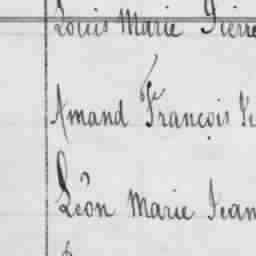 Louis Marie Pierre
Amand François
Léon Marie Jean